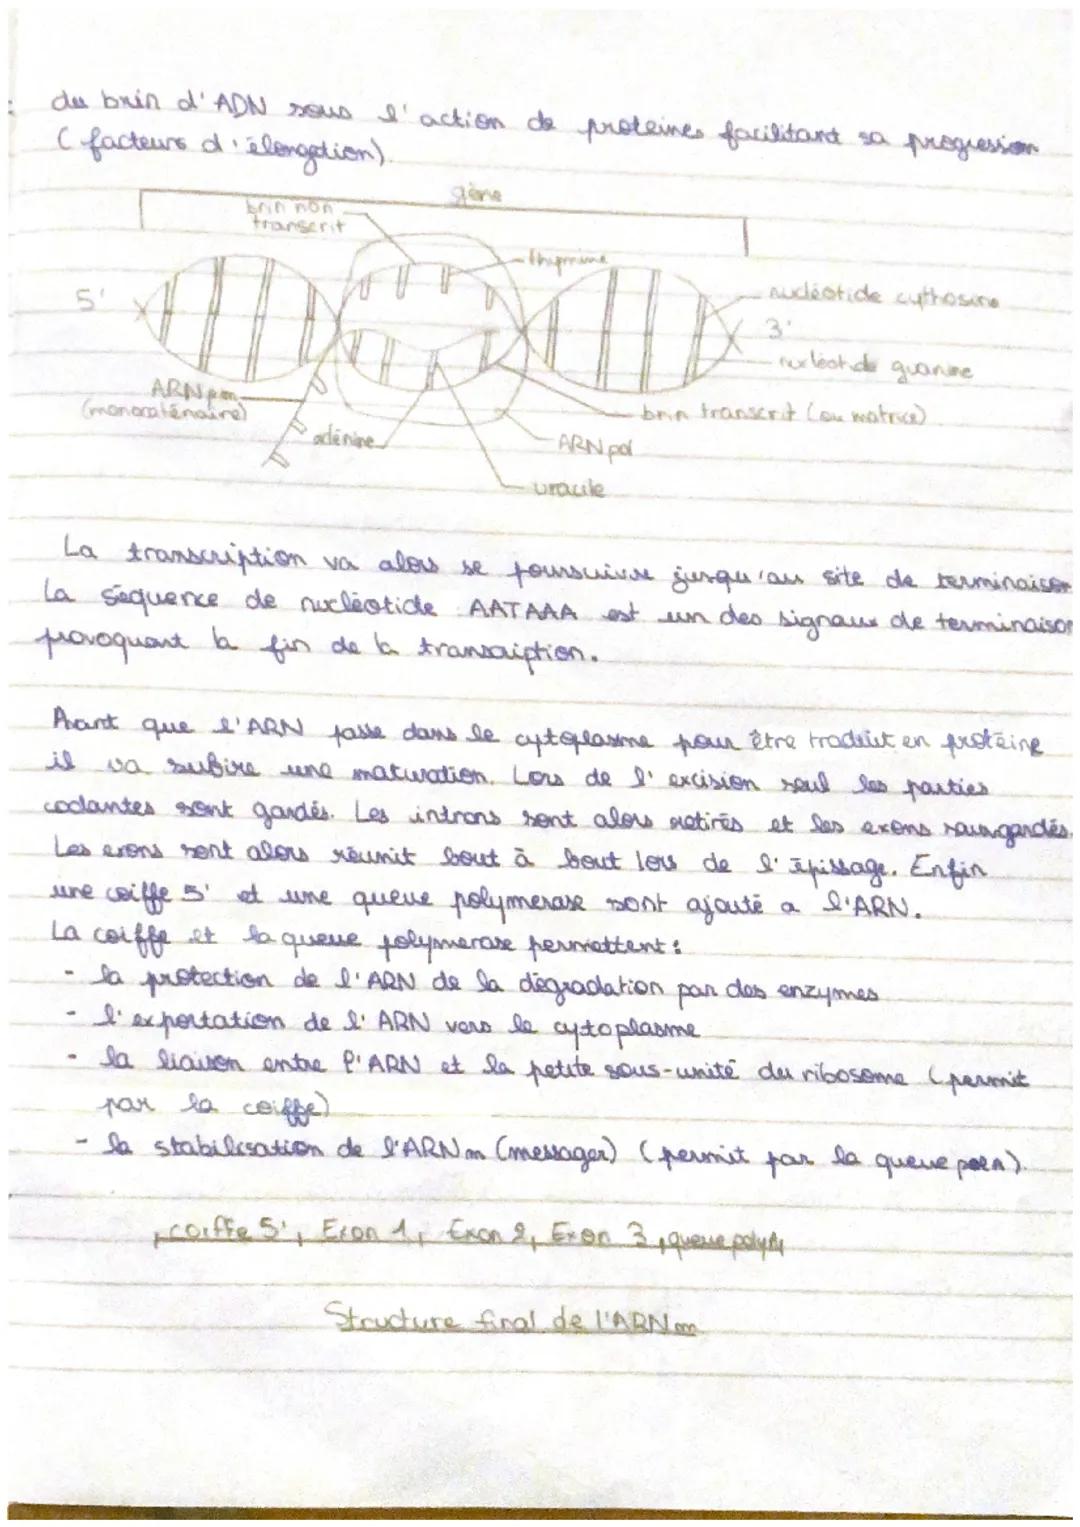 du brin d'ADN sous l'action de proteines facilitant sa progression
(facteurs d'élongation).
gène
brin non
transcrit
thymine
5'
nucléotide cythosine
3'
nucléotide guanine
ARNpm
(monocaténaire)
brin transcrit (ou matrice)
adénine
ARNpol
uracile
La transcription va alors se poursuivre jusqu'au site de terminaison
La séquence de nucléotide AATAAA est un des signaux de terminaison
provoquant la fin de la transcription.
Avant que l'ARN passe dans le cytoplasme pour être traduit en protéine
il va subire une maturation. Lors de l'excision seul les parties
codantes sont gardés. Les introns sont alors retirés et les exons sauvgardés.
Les exons sont alors réunit bout à bout lors de l'épissage. Enfin
une coiffe 5' et une queue polymerase sont ajouté a l'ARN.
La coiffe et la queue polymerase permettent :
- la protection de l'ARN de la dégradation par des enzymes
- l'exportation de l'ARN vers le cytoplasme
- la liaison entre l'ARN et la petite sous-unité du ribosome (permit
par la coiffe)
- la stabilisation de l'ARNm (messager) (permit par la queue
coiffe 5' Exon 1 Exon 2 Exon 3 queue polyA
Structure final de l'ARNm